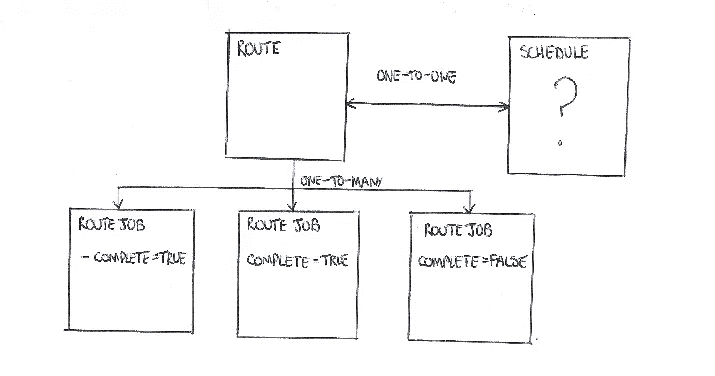 ROUTE
SCHEDULE
ONE-TO-ONE
?
ONE-TO-MANY
ROUTE JOB
- COMPLETE=TRUE
ROUTE JOB
COMPLETE-TRUE
ROUTE JOB
COMPLETE=FALSE